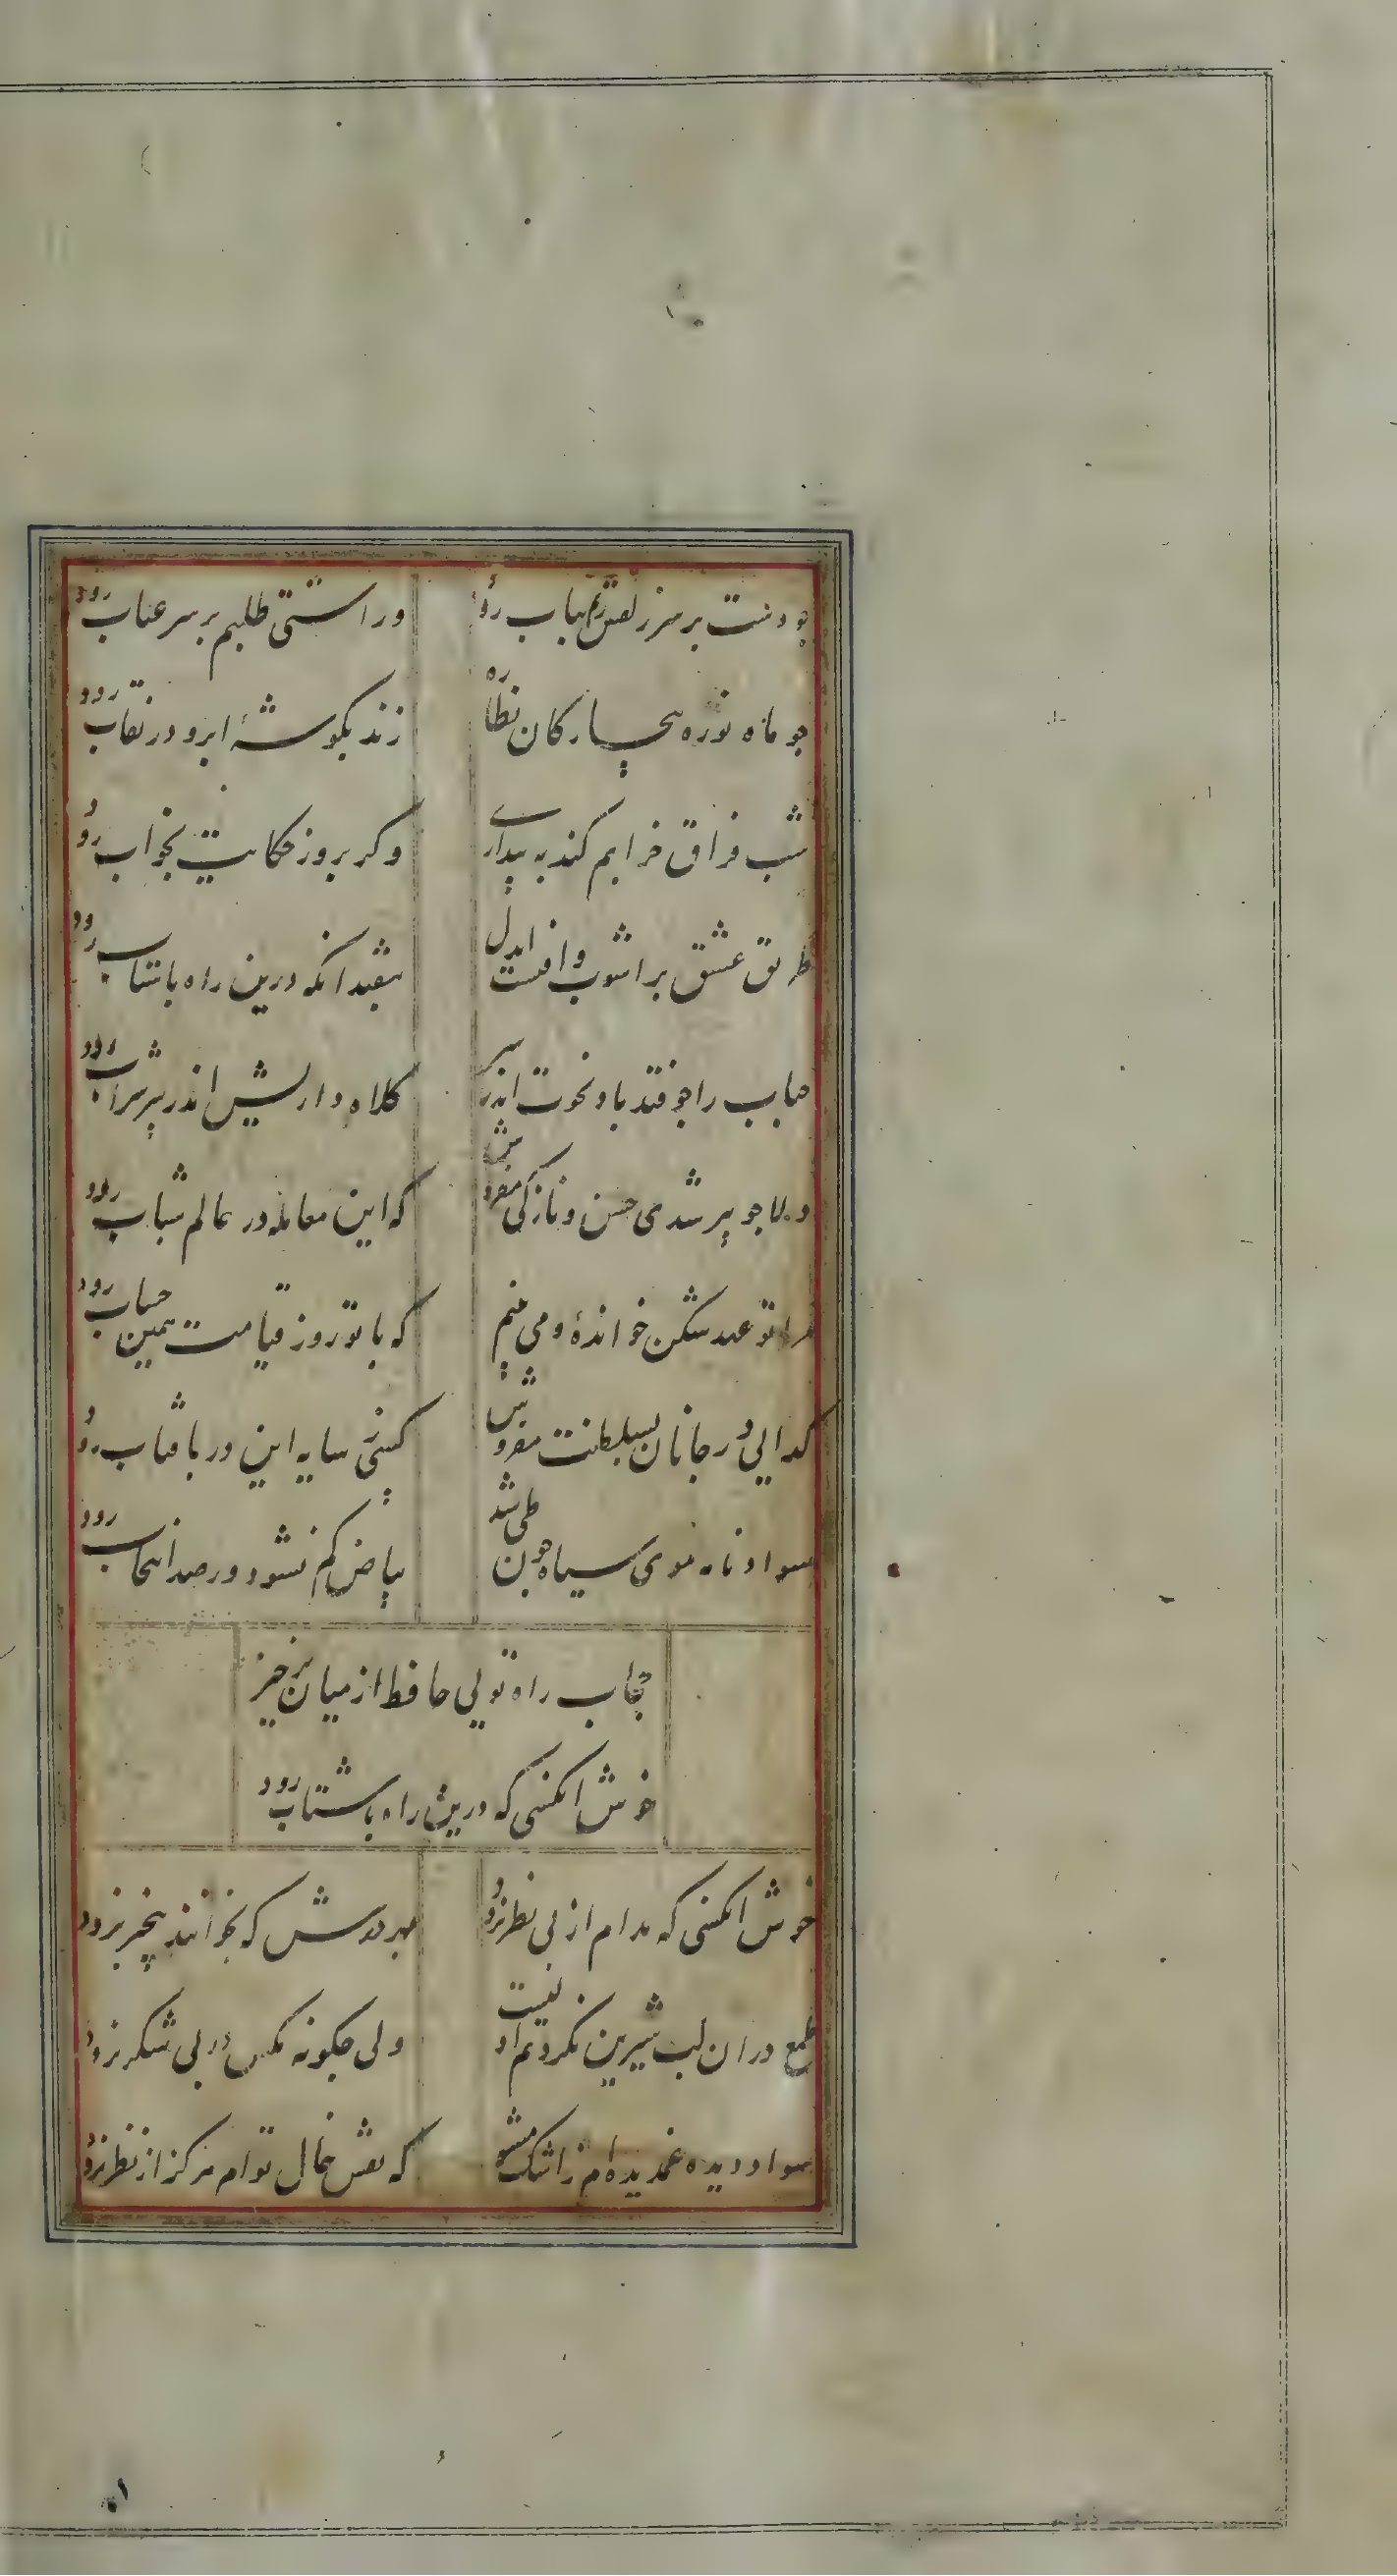 چو دست بر سر زلفش زنم بتاب رود
ور آشتی طلبم بر سر عتاب رود
چو ماه نو ره بیچارکان نظاره
زند بکوشهٔ ابرو و در نقاب رود
شب فراق خرابم کند به بیداری
وکر بروز حکایت بخواب رود
طریق عشق پراشوب و افتست ایدل
بیفتد انکه درین راه باشتاب رود
حباب را چو فتد باد نخوت اندر سر
کلاه داریش اندر سر شراب رود
دلا چو پیر شدی حسن و نازکی مفروش
که این معامله در عالم شباب رود
مرا تو عهدشکن خواندهٔ و می بینم
که با تو روز قیامت همین حساب رود
کدایی در جانان بسلطنت مفروش
کسی ز سایه این در بافتاب رود
سواد نامه موی سیاه چون طی شد
بیاض کم نشود ور صد انتخاب رود
حجاب راه تویی حافظ از میان برخیز
خوش انکسی که درین راه باشتاب رود
خوش انکسی که مدام از پی نظر نرود
بهر درش که بخوانند بیخبر نرود
طمع در ان لب شیرین نکردنم اولیست
ولی چکونه مکس در پی شکر نرود
سواد دیده غمدیده‌ام ز اشک مشو
که نقش خال توام هرکز از نظر نرود